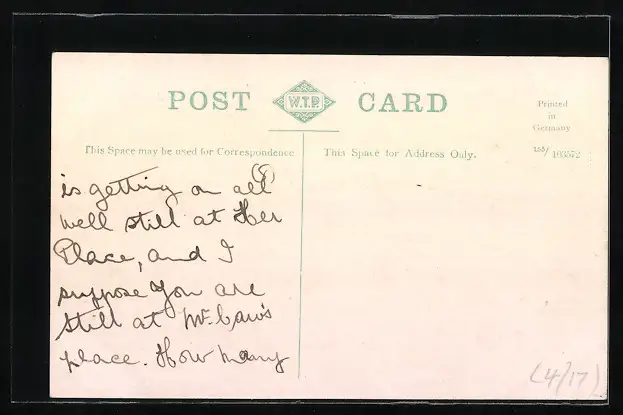 POST W.T.P. CARD
Printed
in
Germany
166/103572
This Space may be used for Correspondence
This Space for Address Only.
(8)
is getting on all
well still at Her
Place, and I
suppose you are
still at Mc.Caw's
place. How many
(4/17)